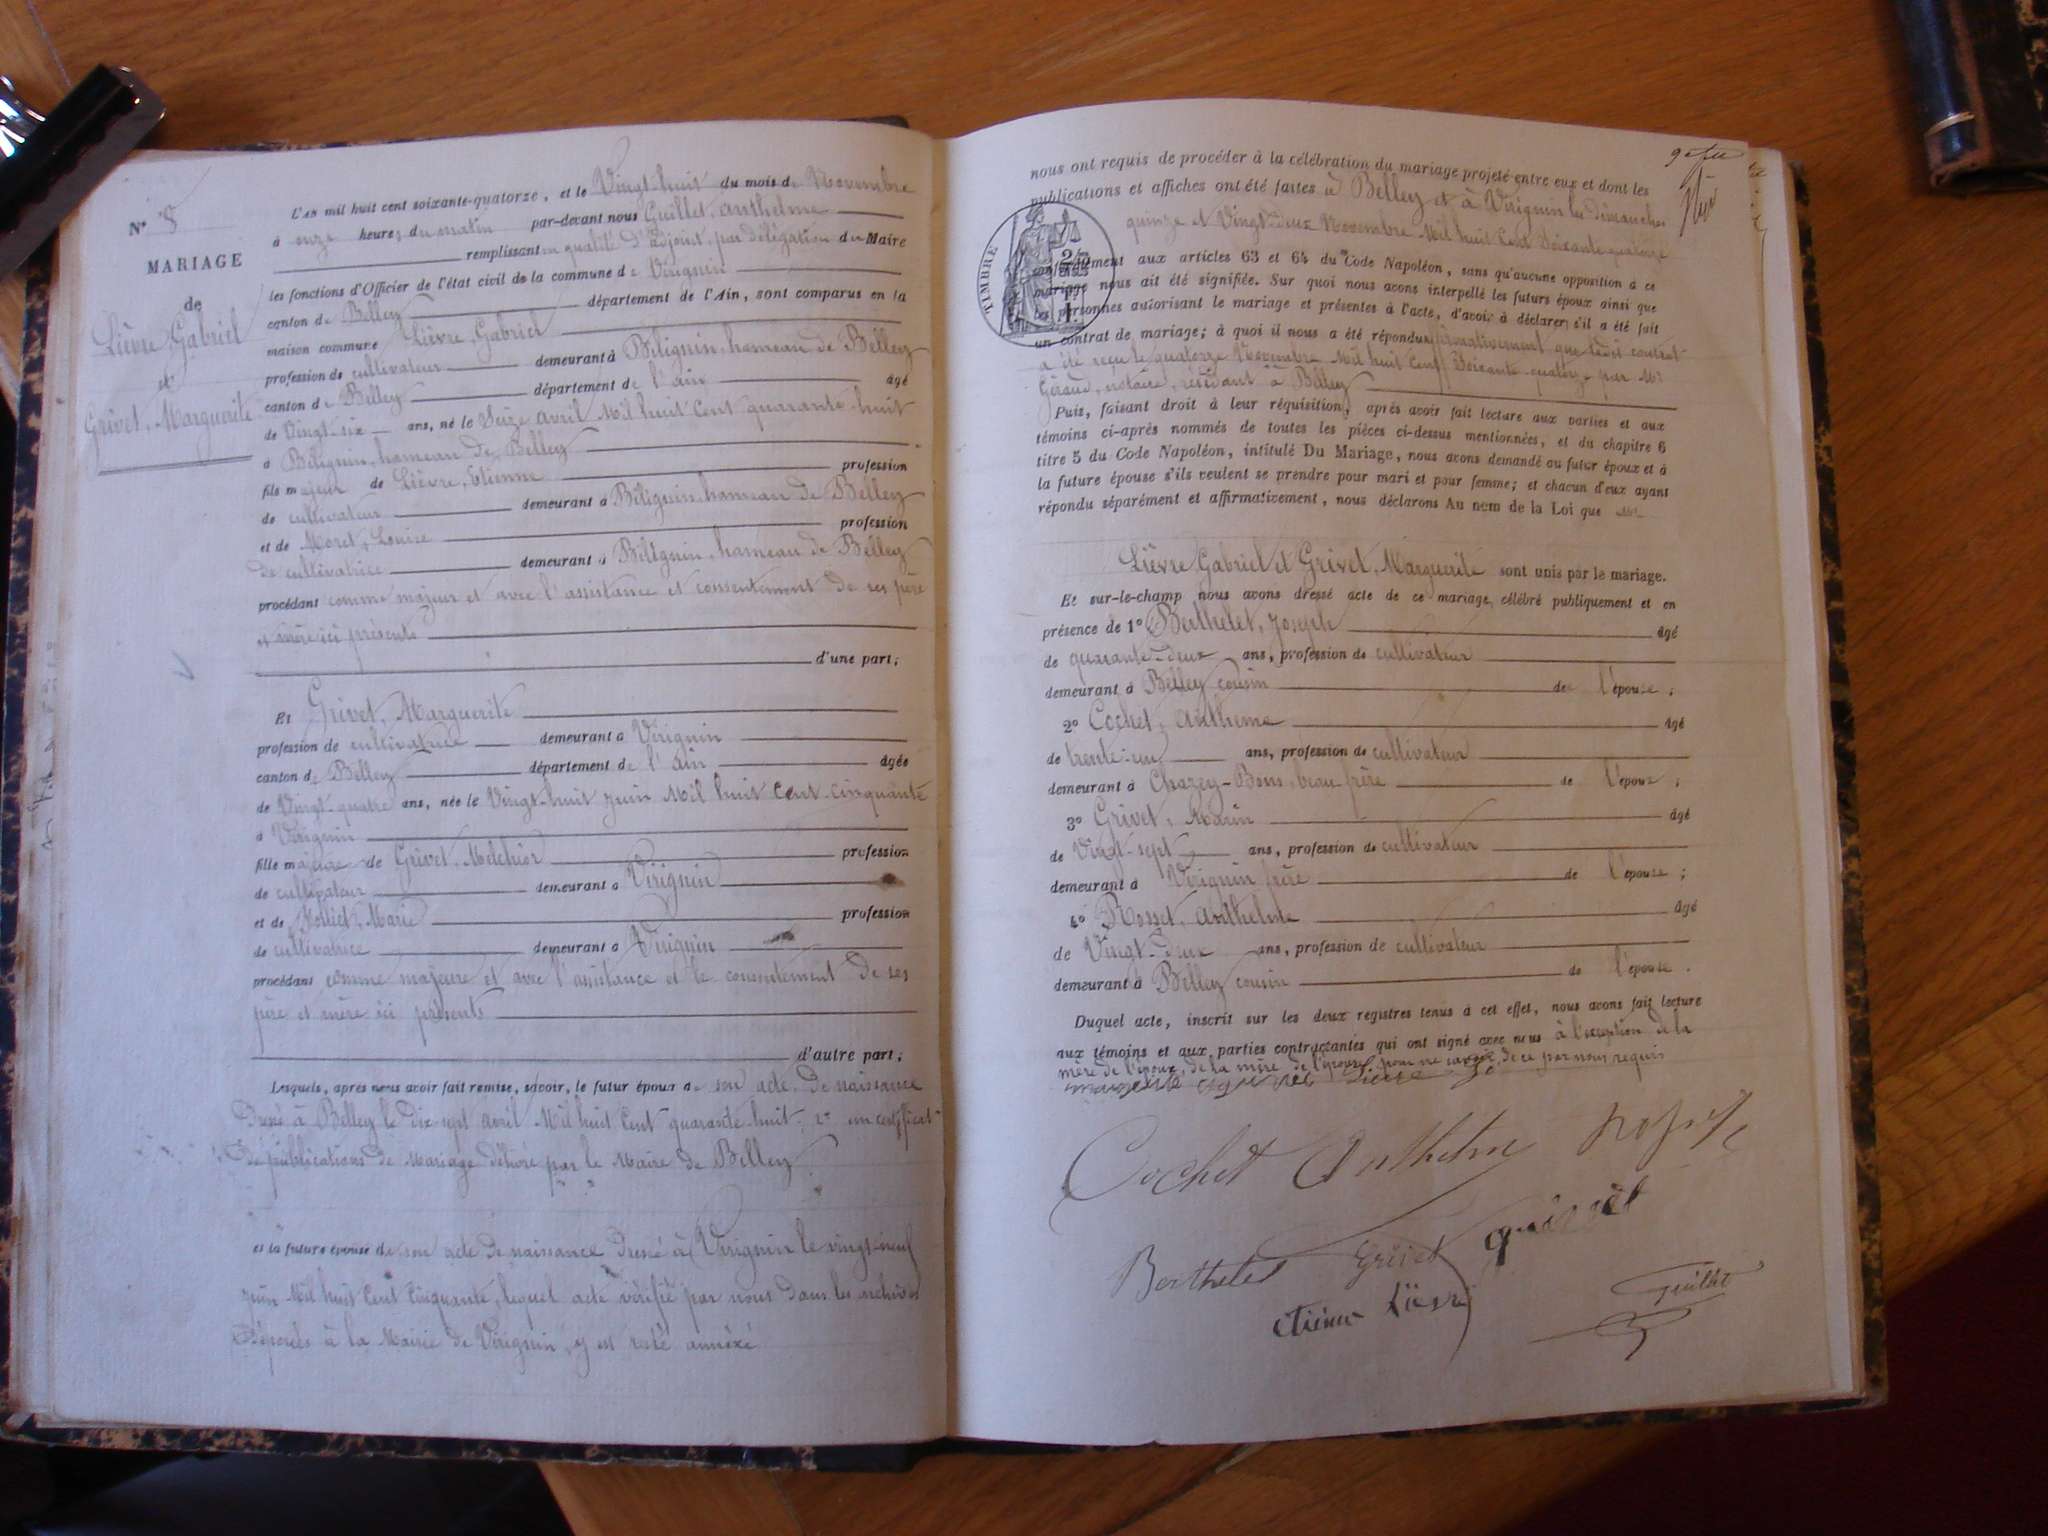 N° 8
MARIAGE
de
Lièvre, Gabriel
et
Grivet, Marguerite
L'An mil huit cent soixante-quatorze, et le Vingt-huit du mois de Novembre
à onze heures du matin par-devant nous Guillet, Anthelme
remplissant en qualité d'adjoint, par délégation du Maire
les fonctions d'Officier de l'état civil de la commune de Virignin
canton de Belley département de l'Ain, sont comparus en la
maison commune Lièvre, Gabriel
profession de cultivateur demeurant à Bilignin, hameau de Belley
canton de Belley département de l'ain âgé
de Vingt-six ans, né le Seize avril Mil huit Cent quarante-huit
à Bilignin, hameau de Belley
fils majeur de Lièvre, Etienne profession
de cultivateur demeurant à Bilignin, hameau de Belley
et de Moret, Louise profession
de cultivatrice demeurant à Bilignin, hameau de Belley
procédant comme majeur et avec l'assistance et consentement de ses père
et mère ici présents
d'une part;
Et Grivet, Marguerite
profession de cultivatrice demeurant à Virignin
canton de Belley département de l'ain âgée
de Vingt-quatre ans, née le Vingt-huit juin Mil huit Cent cinquante
à Virignin
fille majeure de Grivet, Melchior profession
de cultivateur demeurant à Virignin
et de Marie profession
de cultivatrice demeurant à Virignin
procédant comme majeure et avec l'assistance et le consentement de ses
père et mère ici présents
d'autre part;
Lesquels, après nous avoir fait remise, savoir, le futur époux de son acte de naissance
Dressé à Belley le dix-sept avril Mil huit Cent quarante-huit; 2° un certificat
De publications de Mariage délivré par le Maire de Belley
et la future épouse de son acte de naissance Dressé à Virignin le vingt-neuf
juin Mil huit Cent Cinquante, lequel acte vérifié par nous dans les archives
Déposées à la Mairie de Virignin, y est resté annexé
nous ont requis de procéder à la célébration du mariage projeté entre eux et dont les
publications et affiches ont été faites à Belley et à Virignin les dimanches
quinze et Vingt-deux Novembre Mil huit Cent Soixante-quatorze
TIMBRE
conformément aux articles 63 et 64 du Code Napoléon, sans qu'aucune opposition à ce
mariage nous ait été signifiée. Sur quoi nous avons interpellé les futurs époux ainsi que
les personnes autorisant le mariage et présentes à l'acte, d'avoir à déclarer s'il a été fait
un contrat de mariage; à quoi il nous a été répondu affirmativement que contrat
a été reçu le quatorze Novembre Mil huit Cent Soixante-quatorze par Me
Géraud, notaire, résidant à Belley
Puis, faisant droit à leur réquisition, après avoir fait lecture aux parties et aux
témoins ci-après nommés de toutes les pièces ci-dessus mentionnées, et du chapitre 6
titre 5 du Code Napoléon, intitulé Du Mariage, nous avons demandé au futur époux et à
la future épouse s'ils veulent se prendre pour mari et pour femme; et chacun d'eux ayant
répondu séparément et affirmativement, nous déclarons Au nom de la Loi que
Lièvre, Gabriel et Grivet, Marguerite sont unis par le mariage.
Et sur-le-champ nous avons dressé acte de ce mariage, célébré publiquement et en
présence de 1° Berthelet, Joseph âgé
de quarante-deux ans, profession de cultivateur
demeurant à Belley cousin de l'épouse;
2° Cochet, Anthelme âgé
de trente-un ans, profession de cultivateur
demeurant à Chazey-Bons, beau frère de l'époux;
3° Grivet, Marin âgé
de Vingt-sept ans, profession de cultivateur
demeurant à Virignin frère de l'épouse;
4° Rosset, Anthelme âgé
de Vingt-deux ans, profession de cultivateur
demeurant à Belley cousin de l'épouse.
Duquel acte, inscrit sur les deux registres tenus à cet effet, nous avons fait lecture
aux témoins et aux parties contractantes qui ont signé avec nous à l'exception de la
mère de l'époux, de la mère de l'épouse, pour ne savoir, de ce par nous requis
Cochet Anthelme
Berthelet Grivet
Etienne Lièvre
Guillet